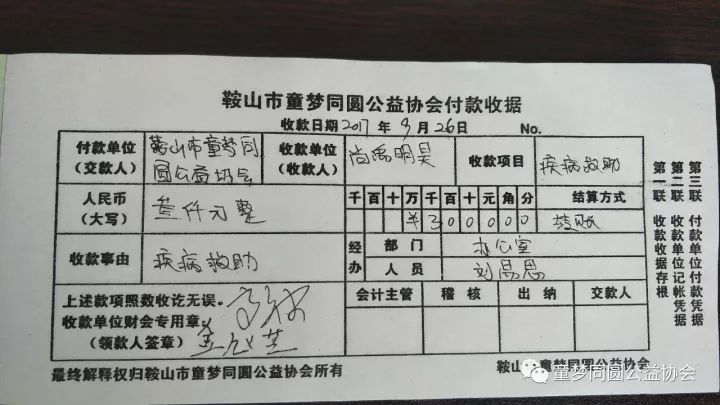 鞍山市童梦同圆公益协会付款收据
收款日期 2017 年 9 月 26 日 No.
付款单位(交款人) 鞍山市童梦同圆公益协会 收款单位(收款人) 尚禹明昊 收款项目 疾病救助
人民币(大写) 叁仟元整 千 百 十 万 千 百 十 元 角 分 结算方式
¥ 3 0 0 0 0 0 转账
收款事由 疾病救助 经办 部门 办公室
人员 刘昌恩
上述款项照数收讫无误。
收款单位财会专用章:
(领款人签章)
会计主管 稽核 出纳 交款人
最终解释权归鞍山市童梦同圆公益协会所有 鞍山市童梦同圆公益协会
第一联 收款收据存根
第二联 收款单位记帐凭据
第三联 付款单位付款凭据
童梦同圆公益协会